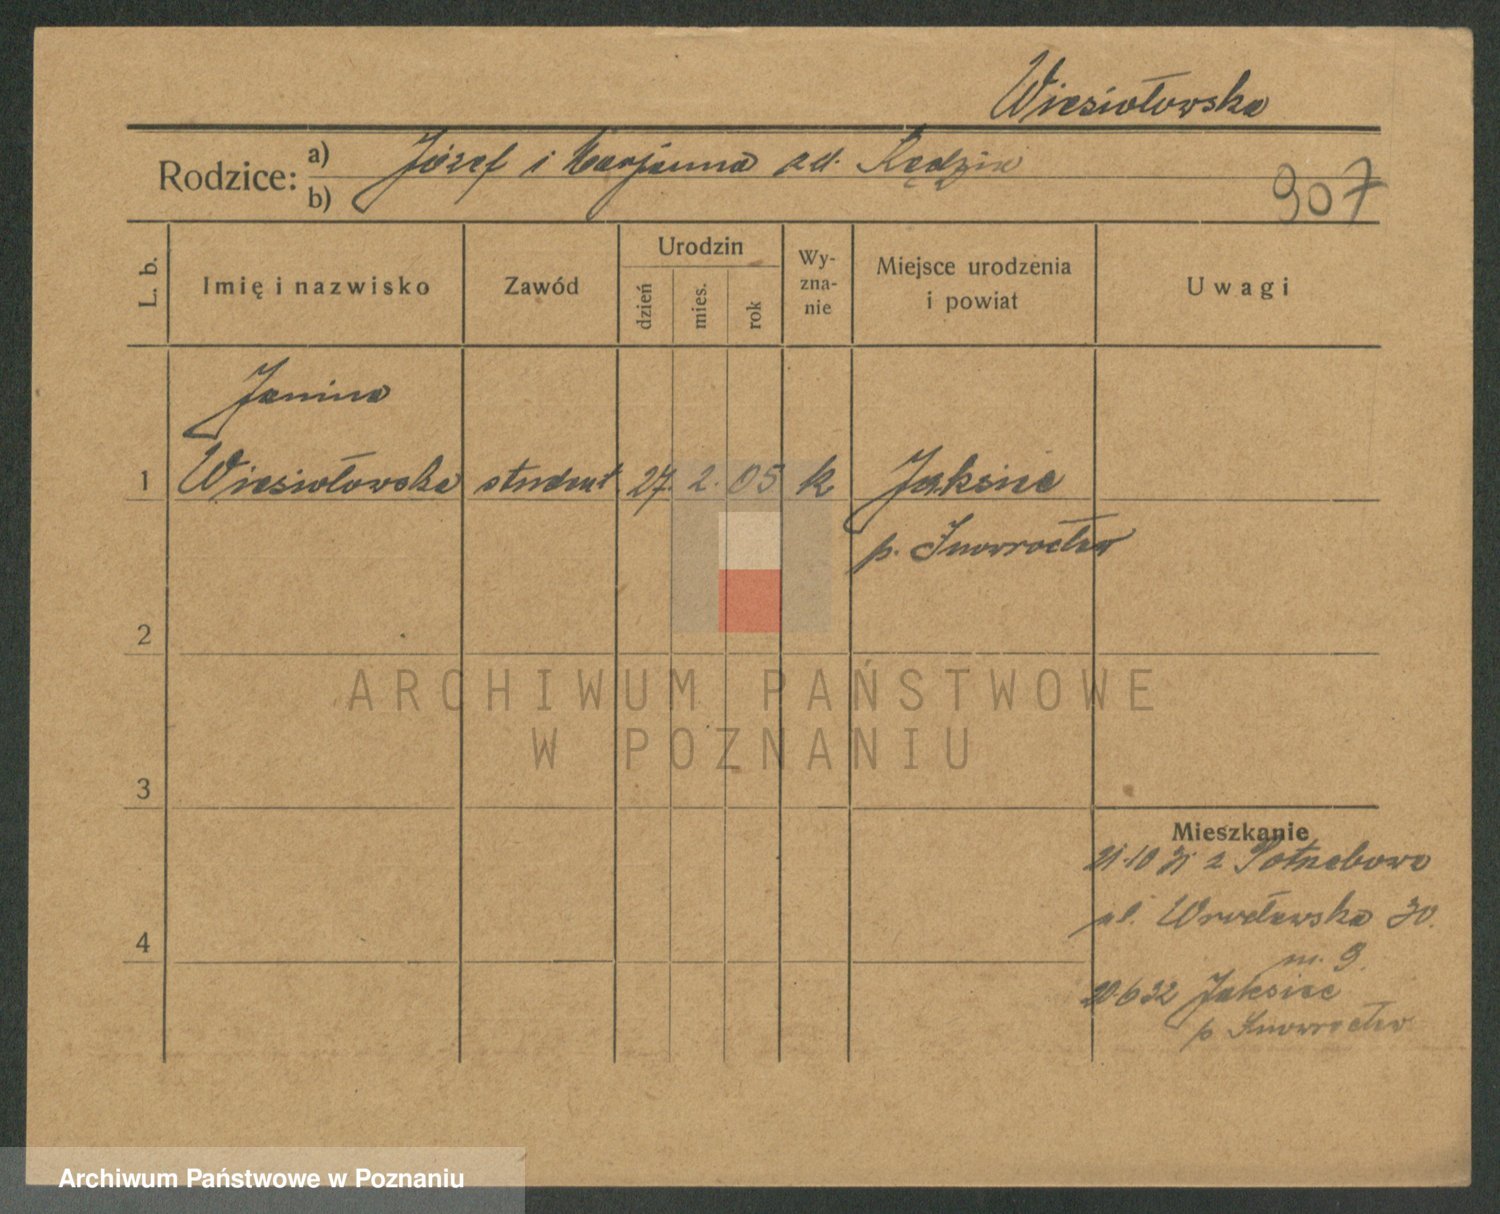 Wiesiołowska
Rodzice: a) Józef i Marjanna zd. Kędzia
b)
907
L. b.
Imię i nazwisko
Zawód
Urodzin
dzień
mies.
rok
Wy-
zna-
nie
Miejsce urodzenia
i powiat
Uwagi
Janina
1 Wiesiołowska student 27. 2. 05 k Jaksice
p. Inowrocław
2
3
4
ARCHIWUM PAŃSTWOWE
W POZNANIU
Mieszkanie
21.10 31 z
ul. Wrocławska 30.
m. 9.
20.6 32 Jaksice
p Inowrocław
Archiwum Państwowe w Poznaniu